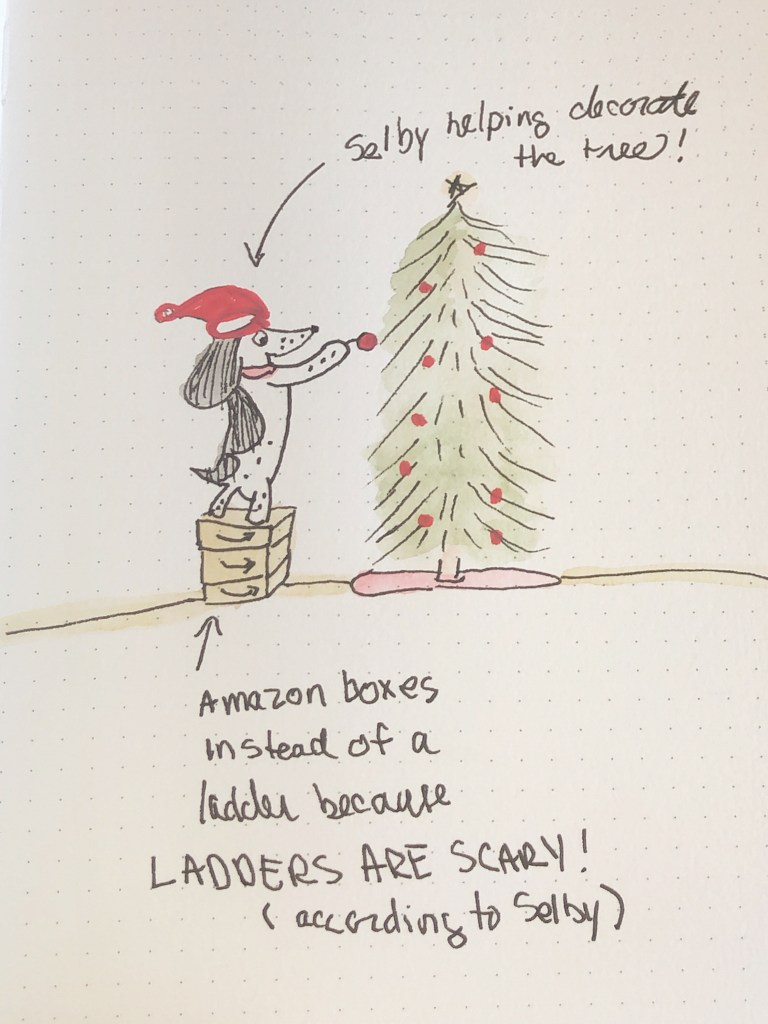 Selby helping decorate
the tree!
Amazon boxes
instead of a
ladder because
LADDERS ARE SCARY!
(according to Selby)